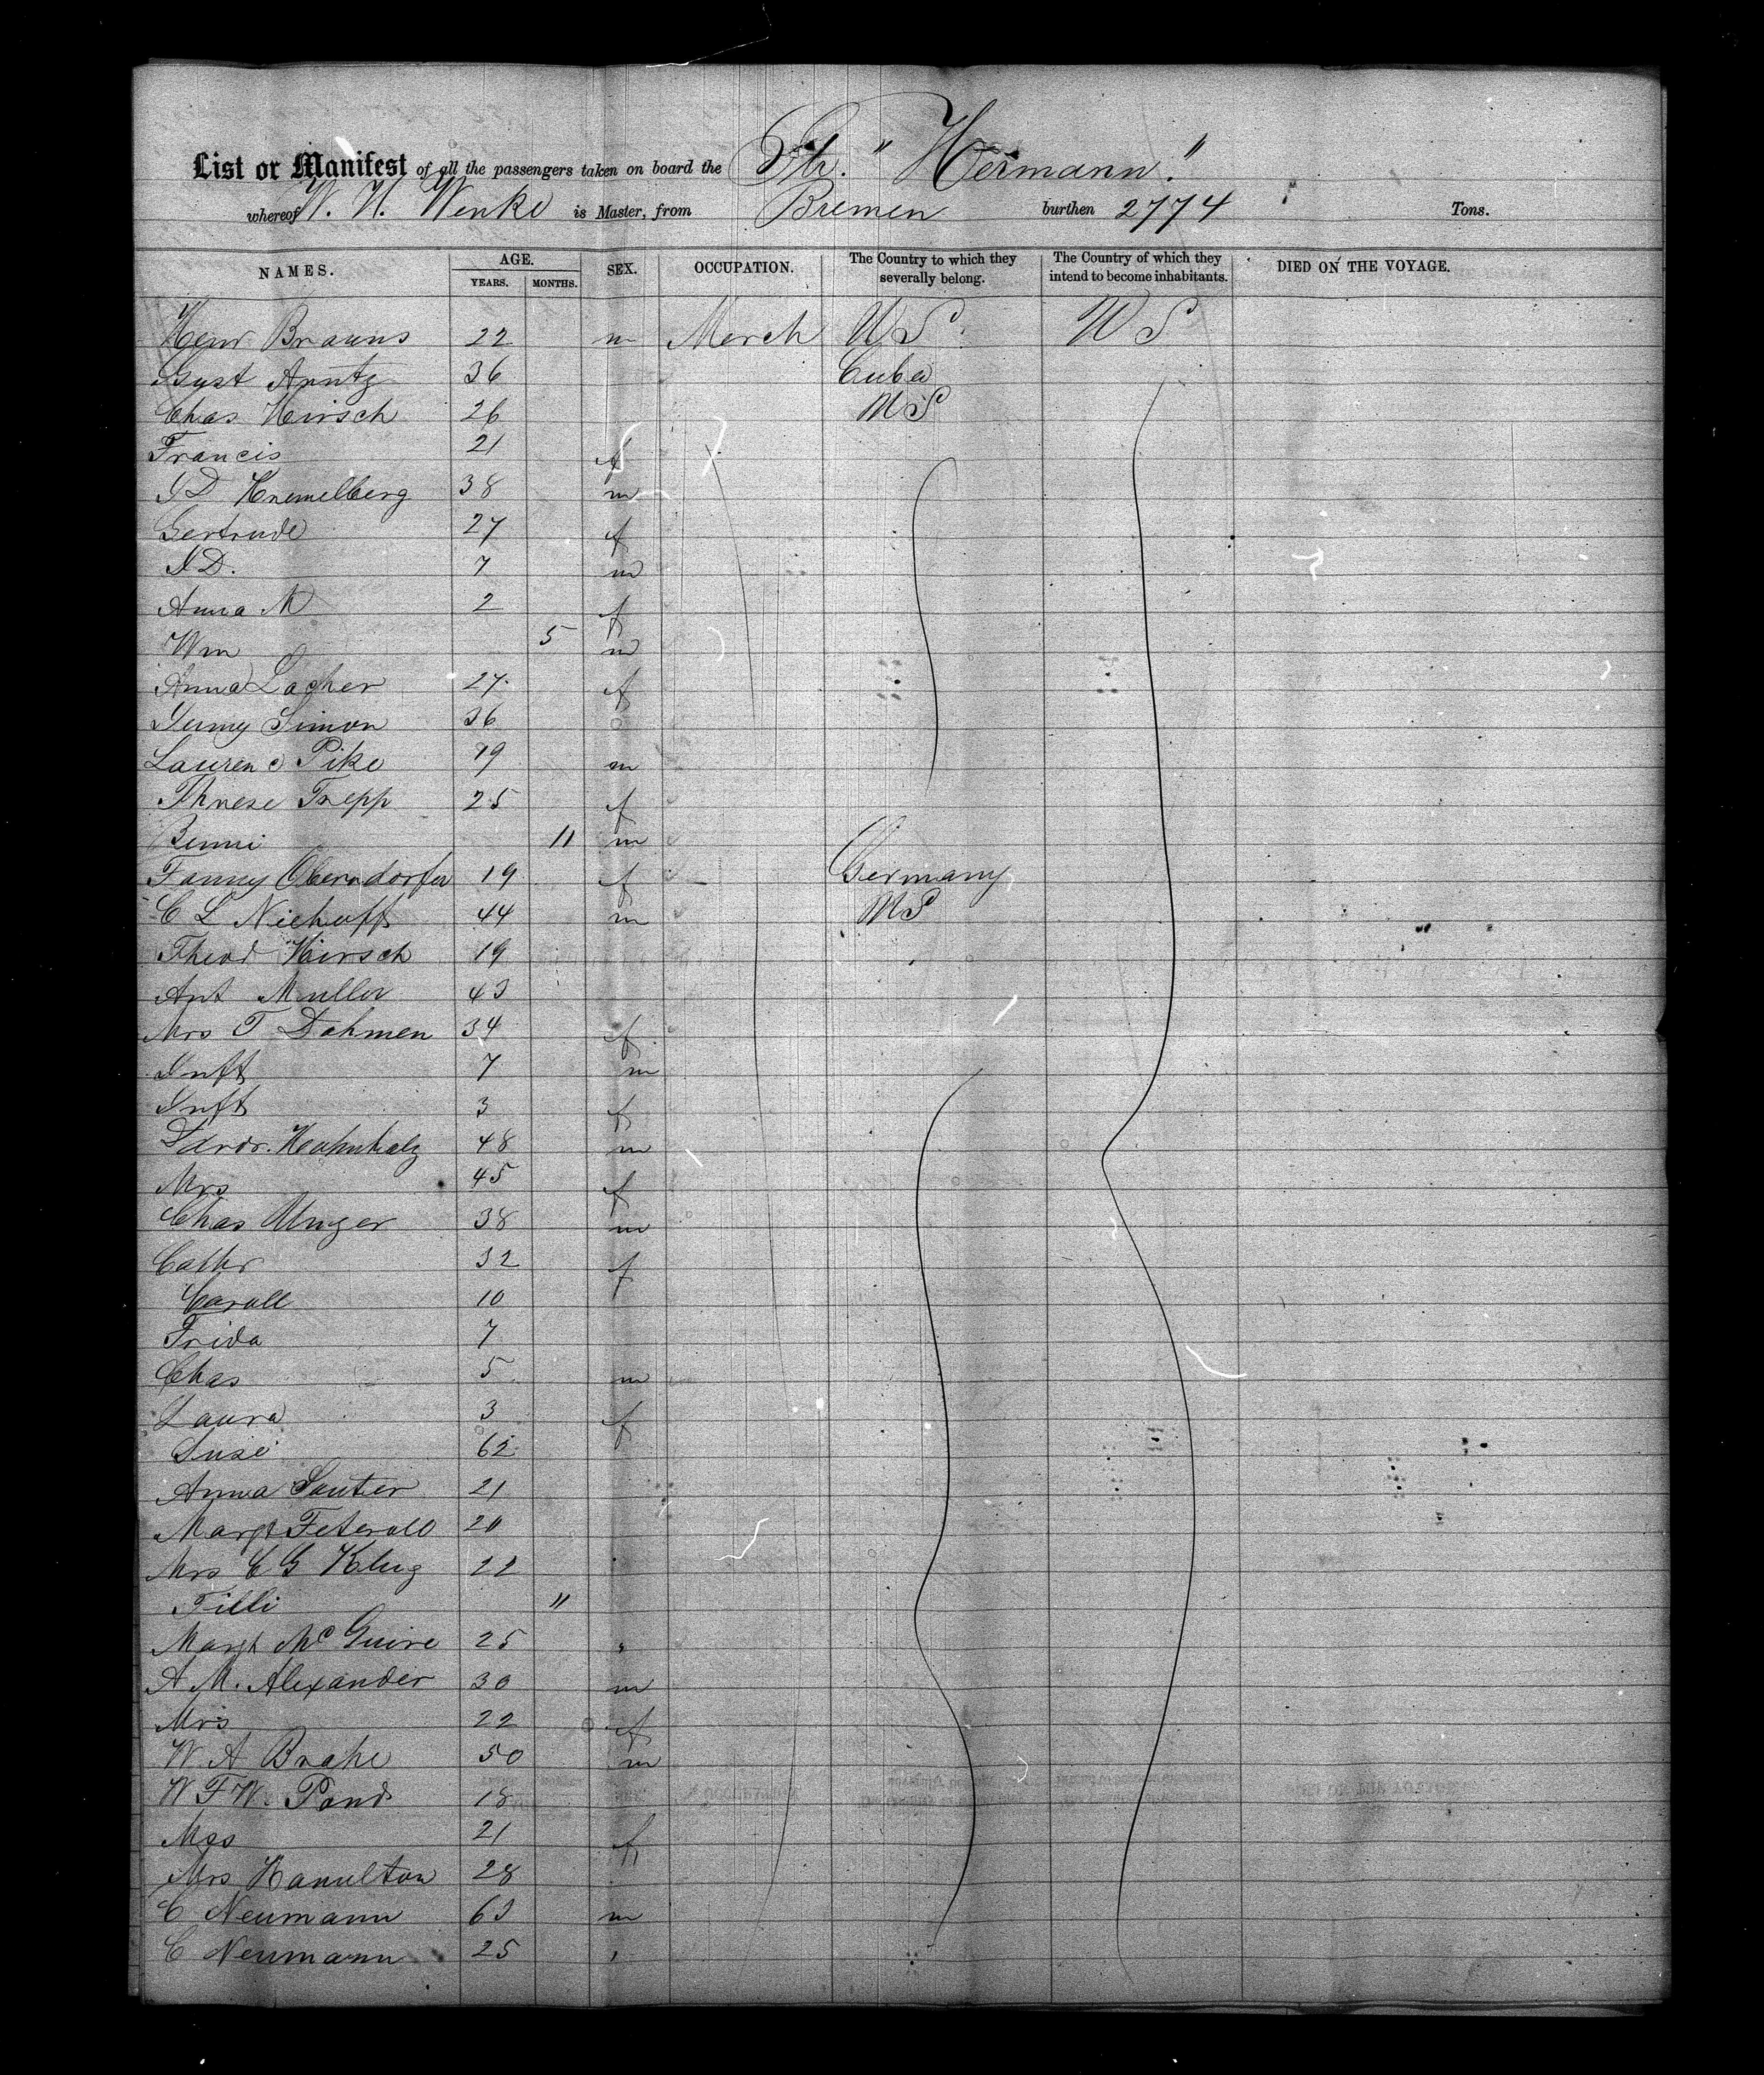 List or Manifest of all the passengers taken on board the Str. "Hermann."
whereof W. H. Wenke is Master, from Bremen burthen 2774 Tons.
NAMES. AGE. YEARS. MONTHS. SEX. OCCUPATION. The Country to which they severally belong. The Country of which they intend to become inhabitants. DIED ON THE VOYAGE.
Henr Brauns 22 m Merch US. US
Gust Arntz 36 Cuba
Chas Hirsch 26 US
Francis 21 f
J D Kremelberg 38 m
Gertrude 27 f
J D. 7 m
Anna M 2 f
Wm 5 m
Anna Locher 27 f
Jenny Simon 36
Laurenc Pike 19 m
Threse Trepp 25 f
Benni 11 m
Fanny Oberndorfer 19 f Germany
C L Niehoff 44 m US
Theod Hirsch 19
Ant Muller 43
Mrs T Dahmen 34 f
Inft 7 m
Inft 3 f
48 m
Mrs 45 f
Chas Unger 38 m
Cathr 32 f
Caroll 10
Frida 7
Chas 5 m
Laura 3 f
Suse 62
Anna Sauter 21
Margt 20
Mrs C G Klug 22
Tilli 11
Margt McGuire 25 "
A M. Alexander 30 m
Mrs 22 f
W A Brahe 50 m
W F W. Pond 18
Mrs 21 f
Mrs Hamilton 28
C Neumann 63 m
C Neumann 25 "